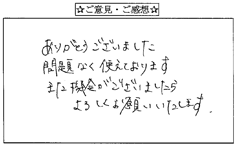 ☆ご意見・ご感想☆
ありがとうございました
問題なく使えております
また機会がございましたら
よろしくお願いいたします.